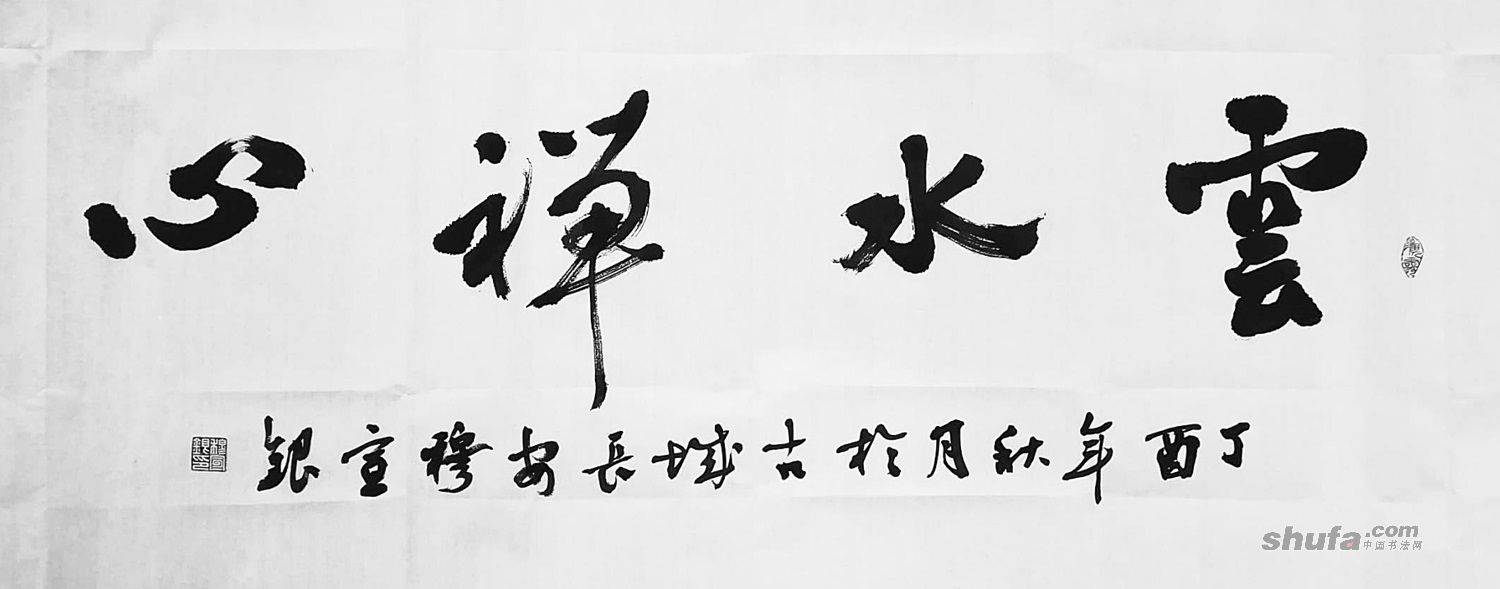 雲水禅心
丁酉年秋月於古城長安穆宣銀
shufa.com
中国书法网